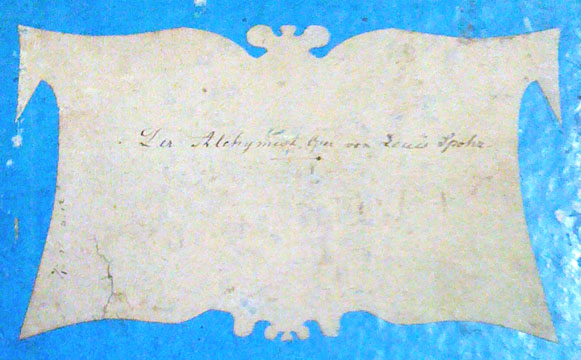 Der Alchymist, Oper von Louis Spohr